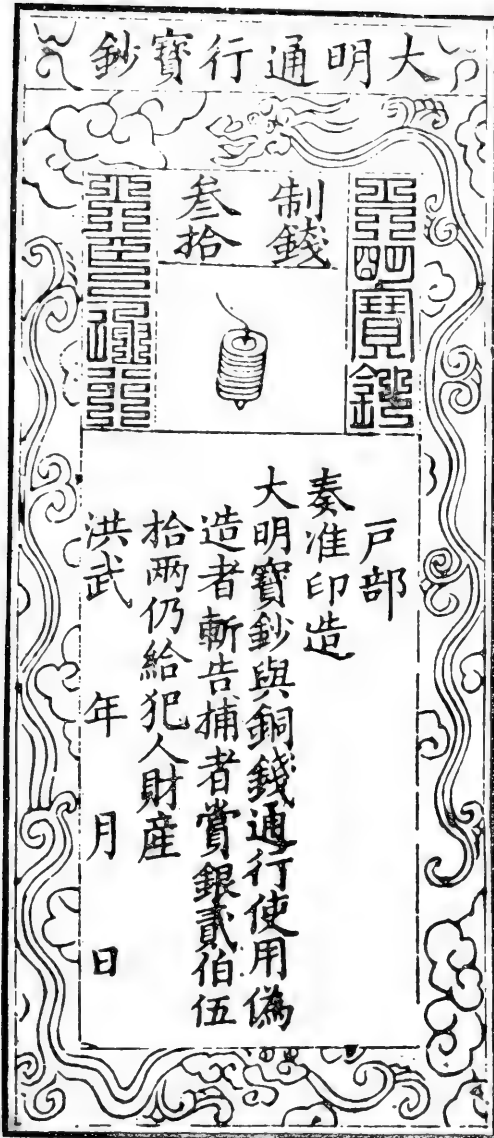 大明通行寶鈔
大明寶鈔
制錢
叁拾
天下通行
戶部
奏准印造
大明寶鈔與銅錢通行使用偽
造者斬告捕者賞銀貳伯伍
拾两仍給犯人財産
洪武 年 月 日